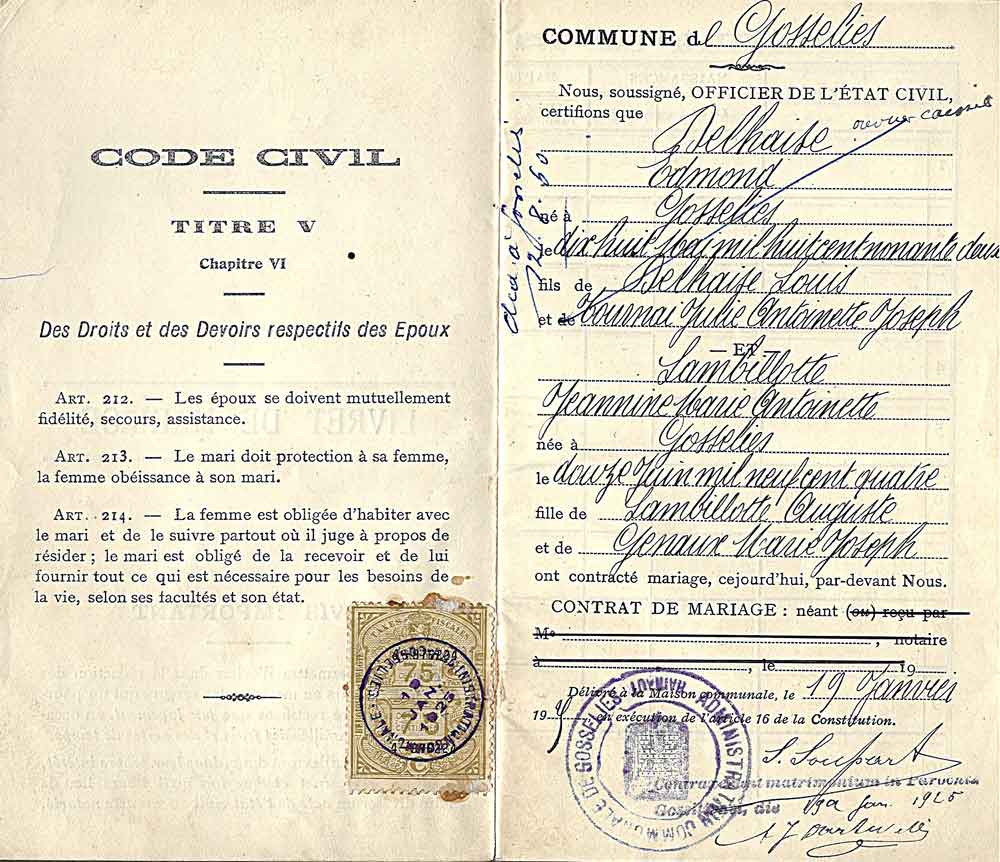 CODE CIVIL
TITRE V
Chapitre VI
Des Droits et des Devoirs respectifs des Epoux
ART. 212. — Les époux se doivent mutuellement
fidélité, secours, assistance.
ART. 213. — Le mari doit protection à sa femme,
la femme obéissance à son mari.
ART. 214. — La femme est obligée d'habiter avec
le mari et de le suivre partout où il juge à propos de
résider ; le mari est obligé de la recevoir et de lui
fournir tout ce qui est nécessaire pour les besoins de
la vie, selon ses facultés et son état.
TAXES FISCALES
75
19 JANV 1925
COMMUNE de Gosselies
Nous, soussigné, OFFICIER DE L'ÉTAT CIVIL,
certifions que
Delhaise
Edmond
né à Gosselies
le dix huit Mai mil huit cent nonante deux
fils de Delhaise Louis
et de Tournai Julie Antoinette Joseph
— ET —
Lambillotte
Jeannine Marie Antoinette
née à Gosselies
le douze Juin mil neuf cent quatre
fille de Lambillotte Auguste
et de Genaux Marie Joseph
ont contracté mariage, cejourd'hui, par-devant Nous.
CONTRAT DE MARIAGE : néant (ou) reçu par
Me , notaire
à , le 19
Délivré à la Maison communale, le 19 Janvier
19 en exécution de l'article 16 de la Constitution.
ADMINISTRATION COMMUNALE DE GOSSELIES HAINAUT
matrimonium in
die
19a Jan. 1925
décé à Gosselies